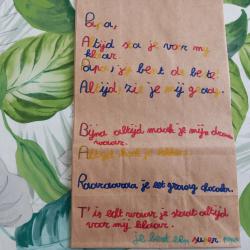 Papa,
Altijd sta je voor mij
klaar.
Papa, jij bent de beste.
Altijd zie je mij graag.
Bijna altijd maak je mijn dromen
waar.
Altijd
Raaraaraaraa je eet graag chocola.
T' is echt waar je staat altijd
voor mij klaar.
je bent een super